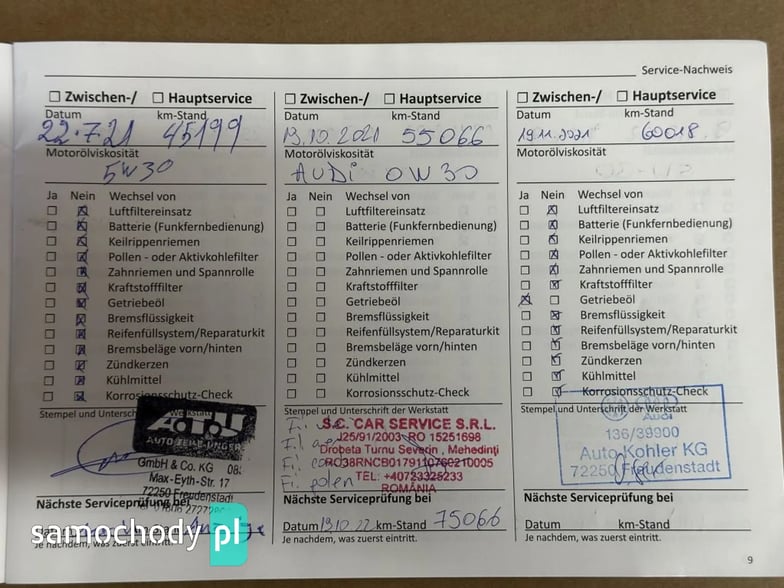 Service-Nachweis
☐ Zwischen-/ ☐ Hauptservice
Datum km-Stand
22.7.21 45199
Motorölviskosität
5W30
Ja Nein Wechsel von
☐ ☒ Luftfiltereinsatz
☐ ☒ Batterie (Funkfernbedienung)
☐ ☒ Keilrippenriemen
☐ ☒ Pollen - oder Aktivkohlefilter
☐ ☒ Zahnriemen und Spannrolle
☐ ☒ Kraftstofffilter
☐ ☒ Getriebeöl
☐ ☒ Bremsflüssigkeit
☐ ☒ Reifenfüllsystem/Reparaturkit
☐ ☒ Bremsbeläge vorn/hinten
☐ ☒ Zündkerzen
☐ ☒ Kühlmittel
☐ ☒ Korrosionsschutz-Check
Stempel und Unterschrift der Werkstatt
A.T.U
GmbH & Co. KG
Max-Eyth-Str. 17
72250 Freudenstadt
Nächste Serviceprüfung bei
Je nachdem, was zuerst eintritt.
☐ Zwischen-/ ☐ Hauptservice
Datum km-Stand
19.10.2021 55066
Motorölviskosität
AUDI 0W30
Ja Nein Wechsel von
☐ ☐ Luftfiltereinsatz
☐ ☐ Batterie (Funkfernbedienung)
☐ ☐ Keilrippenriemen
☐ ☐ Pollen - oder Aktivkohlefilter
☐ ☐ Zahnriemen und Spannrolle
☐ ☐ Kraftstofffilter
☐ ☐ Getriebeöl
☐ ☐ Bremsflüssigkeit
☐ ☐ Reifenfüllsystem/Reparaturkit
☐ ☐ Bremsbeläge vorn/hinten
☐ ☐ Zündkerzen
☐ ☐ Kühlmittel
☐ ☐ Korrosionsschutz-Check
Stempel und Unterschrift der Werkstatt
S.C. CAR SERVICE S.R.L.
J25/91/2003 RO 15251698
Drobeta Turnu Severin, Mehedinți
TEL: +40723325233
ROMÂNIA
Fi polen
Nächste Serviceprüfung bei
Datum 19 10 22 km-Stand 75066
Je nachdem, was zuerst eintritt.
☐ Zwischen-/ ☐ Hauptservice
Datum km-Stand
19.11.2021 60018
Motorölviskosität
Ja Nein Wechsel von
☐ ☒ Luftfiltereinsatz
☐ ☒ Batterie (Funkfernbedienung)
☐ ☒ Keilrippenriemen
☐ ☒ Pollen - oder Aktivkohlefilter
☐ ☒ Zahnriemen und Spannrolle
☐ ☒ Kraftstofffilter
☒ ☐ Getriebeöl
☐ ☒ Bremsflüssigkeit
☐ ☒ Reifenfüllsystem/Reparaturkit
☐ ☒ Bremsbeläge vorn/hinten
☐ ☒ Zündkerzen
☐ ☒ Kühlmittel
☐ ☒ Korrosionsschutz-Check
Stempel und Unterschrift der Werkstatt
Audi
136/39900
Auto-Kohler KG
72250 Freudenstadt
Nächste Serviceprüfung bei
Datum km-Stand
Je nachdem, was zuerst eintritt.
9
samochody pl